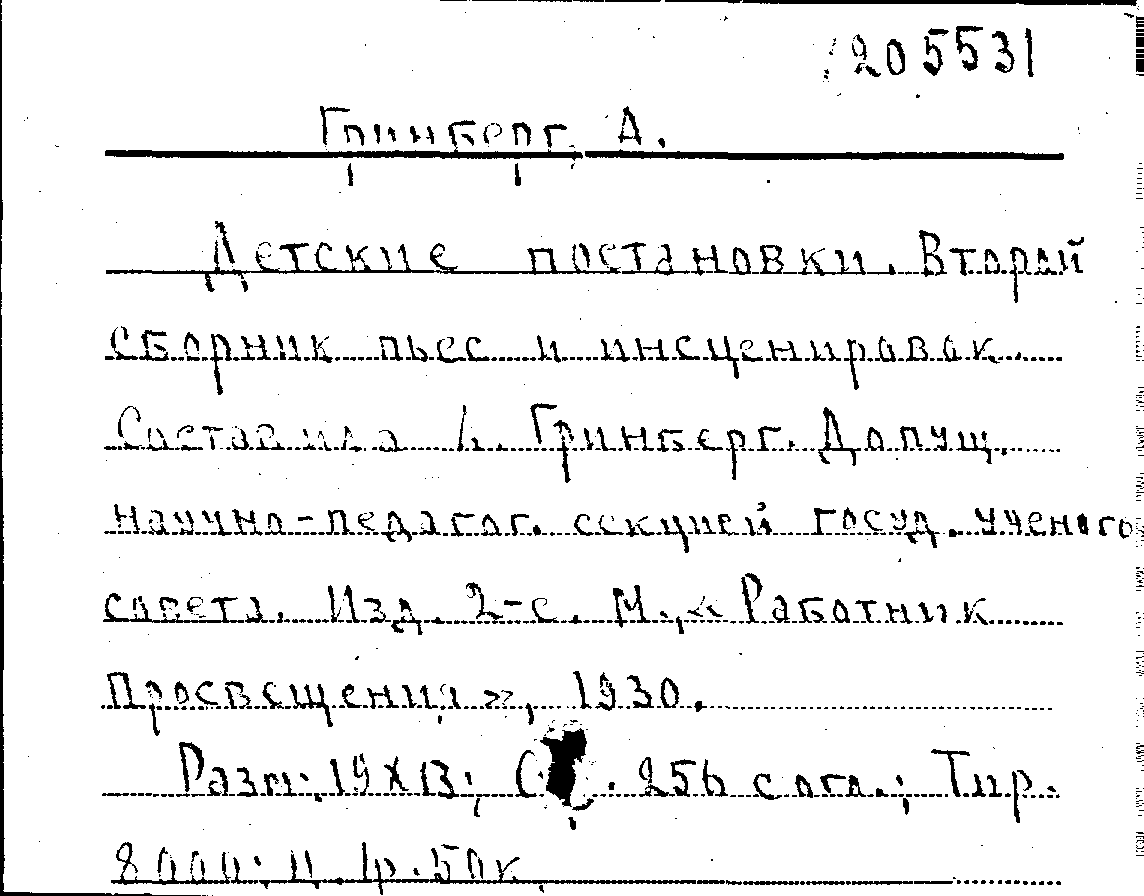 205531
Гринберг, А.
Детские постановки. Второй
сборник пьес и инсценировок.
Составила А. Гринберг. Допущ.
научно-педагог. секцией госуд. ученого
совета. Изд. 2-е. М., «Работник
Просвещения», 1930.
Разм. 19X13; 256 с огл.; Тир.
8000; Ц. 1р. 50к